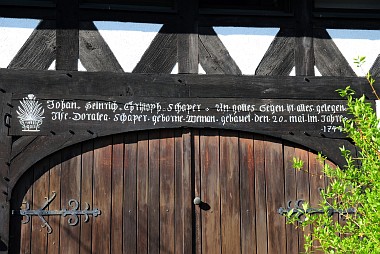 Johan. Heinrich. Christoph. Schaper. An gottes Segen ist alles gelegen.
Ilse. Doratea. Schaper. geborne. Nieman. gebauet. den 20. mai. Im. Jahre.
1744